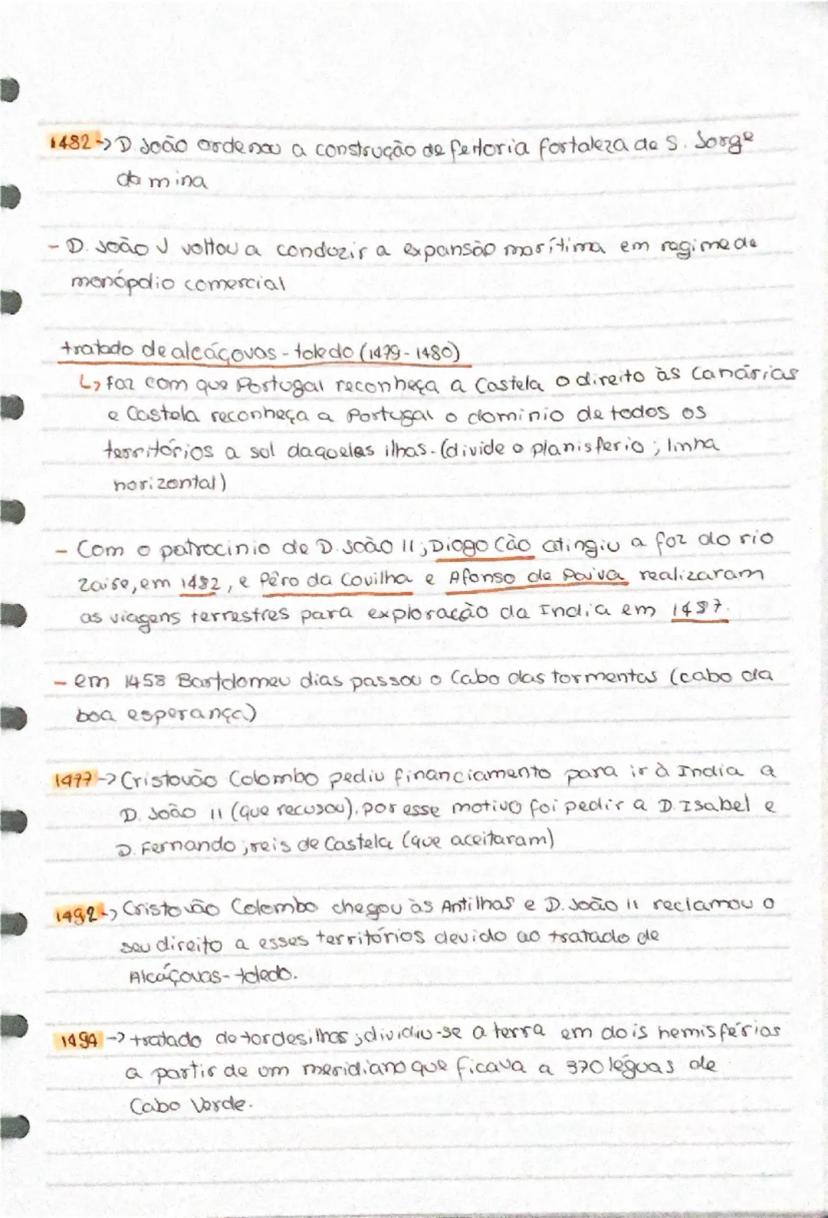 1482 -> D João ordenou a construção de feitoria fortaleza de S. Jorge
da mina
- D. João J voltou a conduzir a expansão marítima em regime de
monópolio comercial
tratado de alcáçovas - toledo (1479 - 1480)
↳ faz com que Portugal reconheça a Castela o direito às Canárias
e Castela reconheça a Portugal o dominio de todos os
territórios a sol daquelas ilhas. (divide o planisferio ; linha
horizontal)
- Com o patrocinio de D. João II, Diogo Cão atingiu a foz do rio
Zaire, em 1482, e Pêro da Covilha e Afonso de Paiva realizaram
as viagens terrestres para exploração da India em 1487.
- em 1458 Bartolomeu dias passou o Cabo das tormentas (cabo da
boa esperança)
1477 -> Cristovão Colombo pediu financiamento para ir à India a
D. João II (que recusou), por esse motivo foi pedir a D. Isabel e
D. Fernando, reis de Castela (que aceitaram)
1492 -> Cristovão Colombo chegou às Antilhas e D. João II reclamou o
seu direito a esses territórios devido ao tratado de
Alcáçovas - toledo.
1494 -> tratado de tordesilhas ; dividiu-se a terra em dois hemisférios
a partir de um meridiano que ficava a 370 léguas de
Cabo Verde.